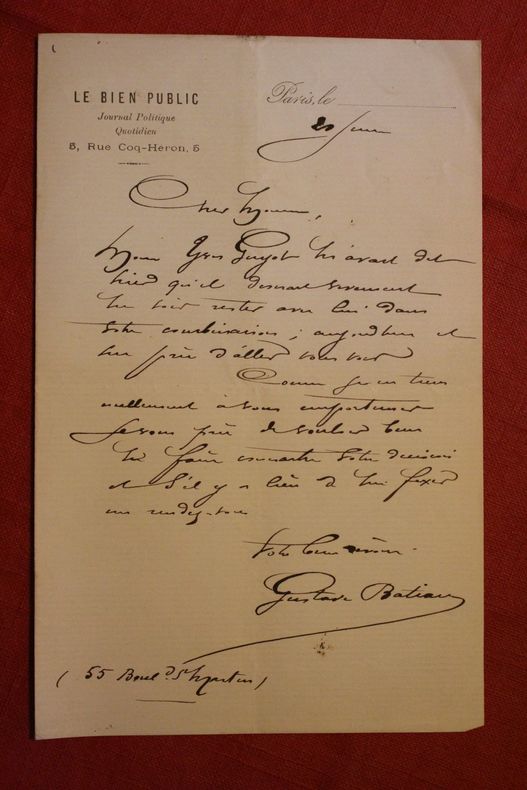 LE BIEN PUBLIC
Journal Politique
Quotidien
5, Rue Coq-Héron, 5
Paris, le
Cher Monsieur,
Monsieur Yves Guyot m'avait dit
hier qu'il désirait vivement
me voir rester avec lui dans
votre combinaison ; aujourd'hui il
me prie d'aller vous voir
Comme je ne tiens
nullement à vous importuner
je vous prie de vouloir bien
me faire connaître votre décision
et s'il y a lieu de me fixer
un rendez-vous
Votre bien
Gustave
(55 Boul. d St Martin)